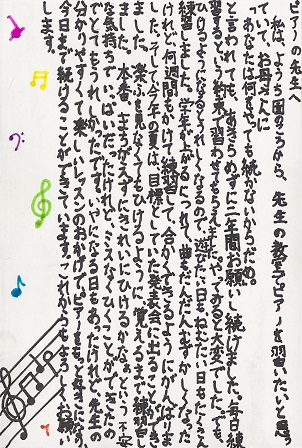 ピアノの先生
私は、ようち園のころから、先生の教室でピアノを習いたいと思
っていて、お母さんに
「あなたは何をやっても続かないからだめ。」
と言われても、あきらめずに二年間お願いし続けました。毎日練
習するという約束で習わせてもらえました。やってみると大変でした。でも、
ひけるようになるとうれしくなるので、遊びたい日もねむたい日もたくさん
練習しました。学年が上がるにつれて、曲もだんだんむずかしくなった
けれど、何週間もかけて練習して、合かくできるようにがんばりま
した。そして今年の夏は、目標としていた発表会に出ることができ
ました。楽ふを見なくてもひけるように、覚えるまで練習し
ました。本番、まちがえずにきれいにひけるかなぁという不安
な気持ちでいっぱいだったけれど、ミスなくひくことができたの
でとてもうれしかったです。いやになる日もあったけれど、先生の
分かりやすくて楽しいレッスンのおかげでピアノをもっと好きになり、
今日まで続けることができています。これからもよろしくお願い
します。